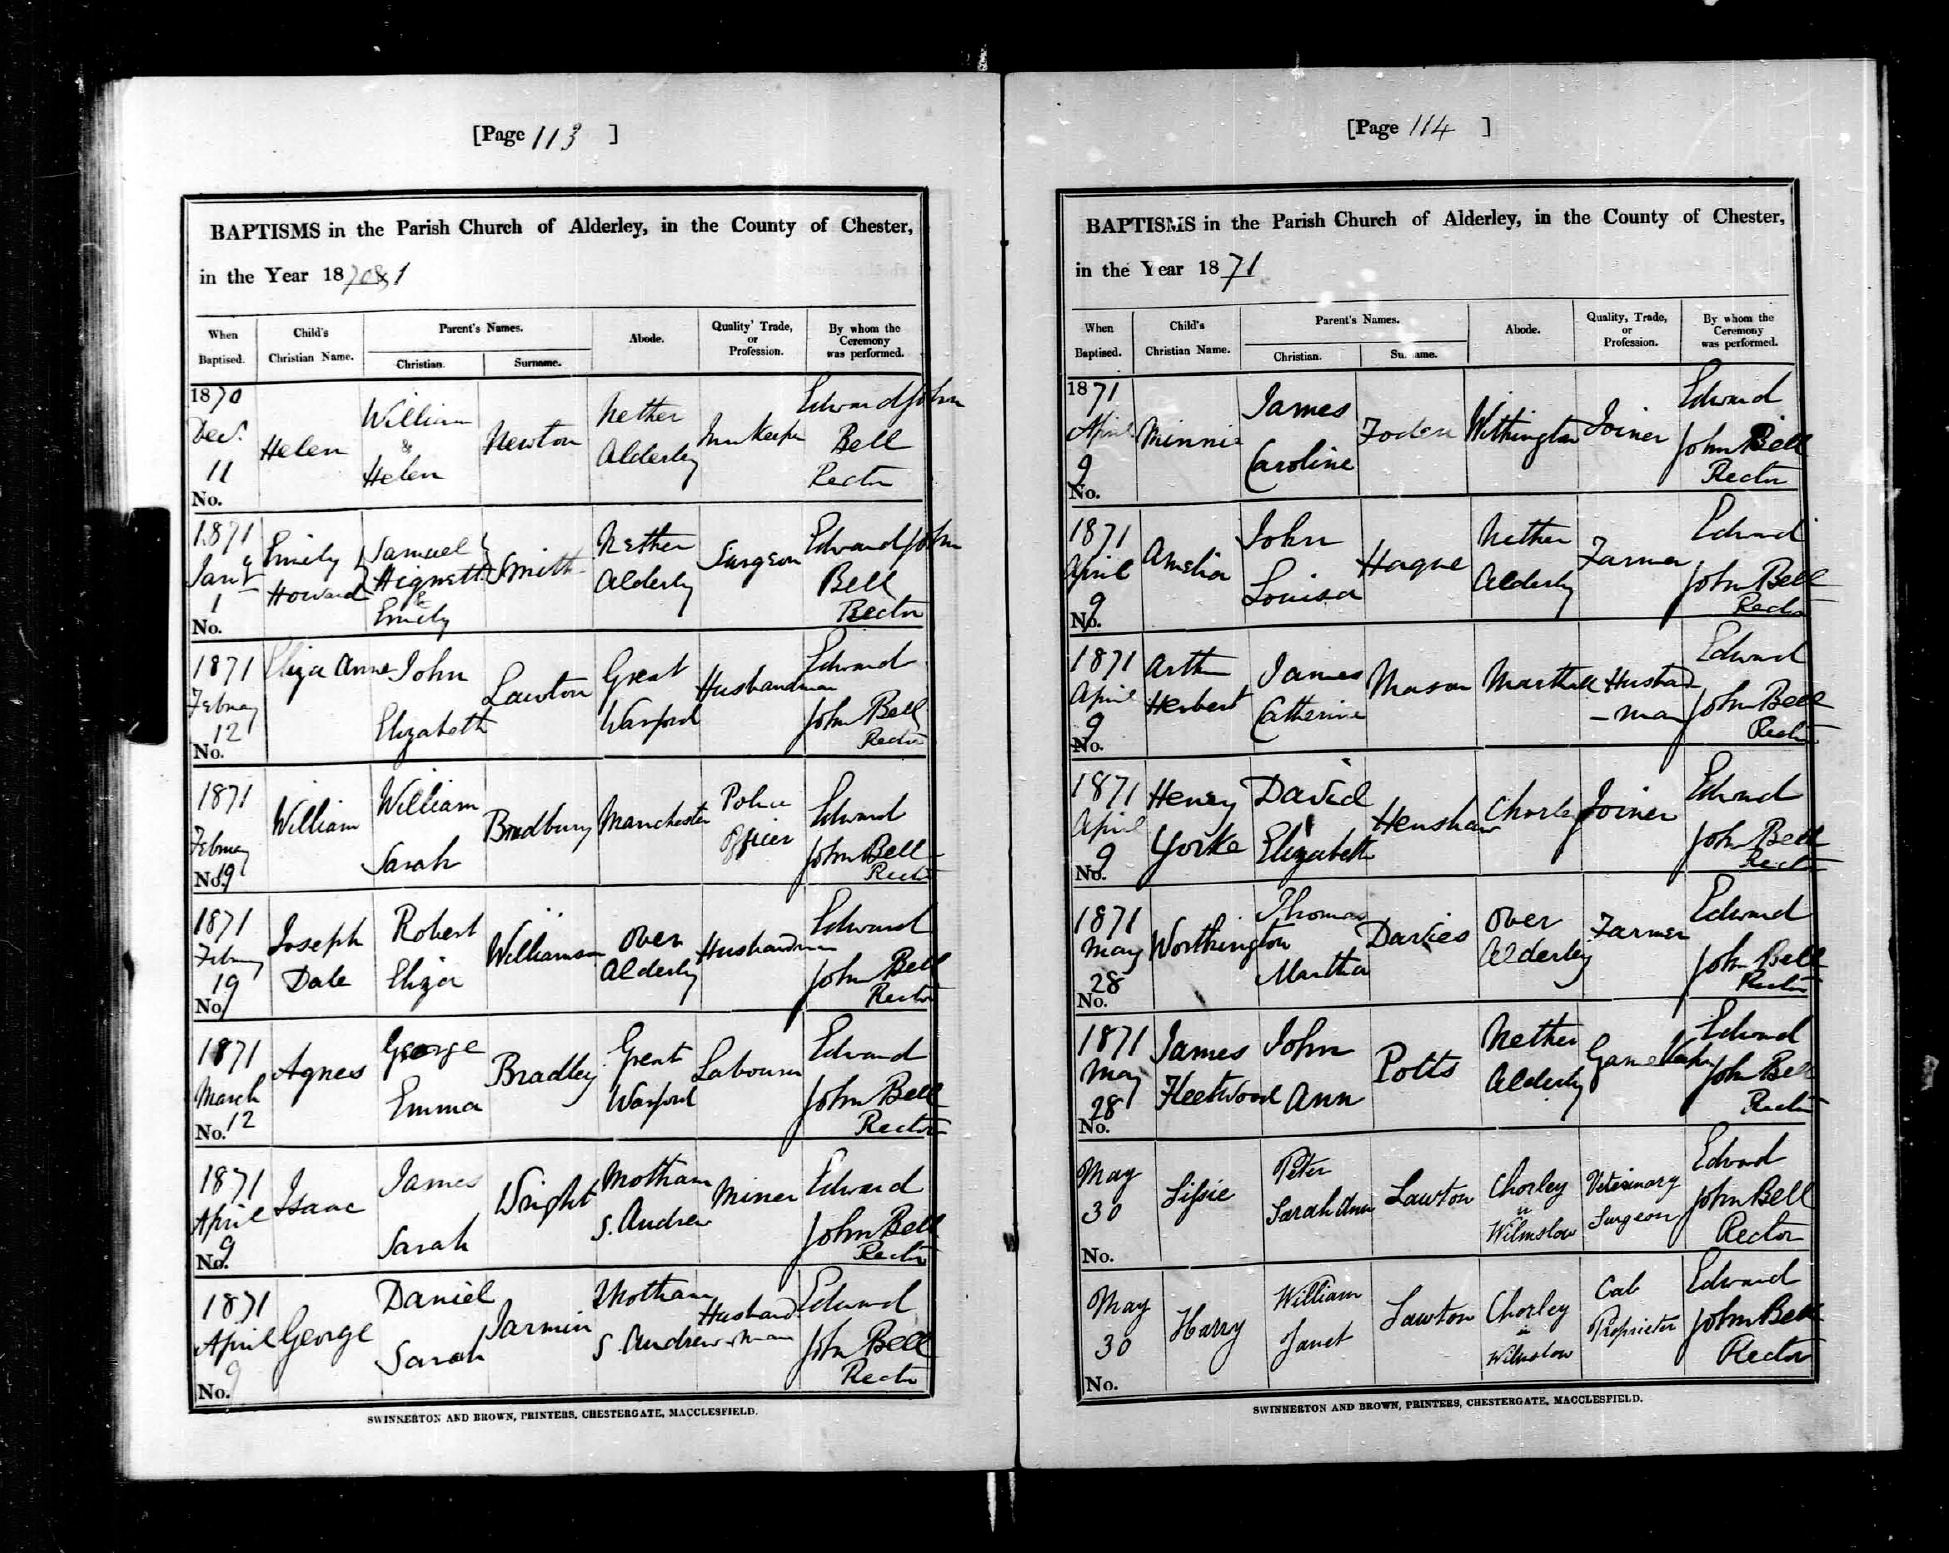 [Page 113 ]
BAPTISMS in the Parish Church of Alderley, in the County of Chester,
in the Year 1870&1
When Baptised. Child's Christian Name. Parent's Names. Christian. Surname. Abode. Quality' Trade, or Profession. By whom the Ceremony was performed.
1870 Decr. 11 No. Helen William & Helen Newton Nether Alderley Innkeeper Edward John Bell Rector
1871 Jany 1 No. Emily Howard Samuel Hignett & Emily Smith Nether Alderley Surgeon Edward John Bell Rector
1871 February 12 No. Eliza Anne John Elizabeth Lawton Great Warford Husbandman Edward John Bell Rector
1871 February 19 No. William William Sarah Bradbury Manchester Police Officer Edward John Bell Rector
1871 February 19 No. Joseph Dale Robert Eliza Williamson Over Alderley Husbandman Edward John Bell Rector
1871 March 12 No. Agnes George Emma Bradley Great Warford Labourer Edward John Bell Rector
1871 April 9 No. Isaac James Sarah Wright Mottram S. Andrew Miner Edward John Bell Rector
1871 April 9 No. George Daniel Sarah Jarmin Mottram S. Andrew Husbandman Edward John Bell Rector
SWINNERTON AND BROWN, PRINTERS, CHESTERGATE, MACCLESFIELD.
[Page 114 ]
BAPTISMS in the Parish Church of Alderley, in the County of Chester,
in the Year 1871
When Baptised. Child's Christian Name. Parent's Names. Christian. Surname. Abode. Quality, Trade, or Profession. By whom the Ceremony was performed.
1871 April 9 No. Minnie James Caroline Foden Withington Joiner Edward John Bell Rector
1871 April 9 No. Amelia John Louisa Hague Nether Alderley Farmer Edward John Bell Rector
1871 April 9 No. Herbert James Catherine Mason Marthall Husband-man Edward John Bell Rector
1871 April 9 No. Henry Yorke David Elizabeth Henshaw Chorley Joiner Edward John Bell Rector
1871 May 28 No. Worthington Thomas Martha Davies Over Alderley Farmer Edward John Bell Rector
1871 May 28 No. James Fleetwood John Ann Potts Nether Alderley Game Edward John Bell Rector
May 30 No. Lissie Peter Sarah Ann Lawton Chorley in Wilmslow Veterinary Surgeon Edward John Bell Rector
May 30 No. Harry William Janet Lawton Chorley in Wilmslow Cab Proprietor Edward John Bell Rector
SWINNERTON AND BROWN, PRINTERS, CHESTERGATE, MACCLESFIELD.